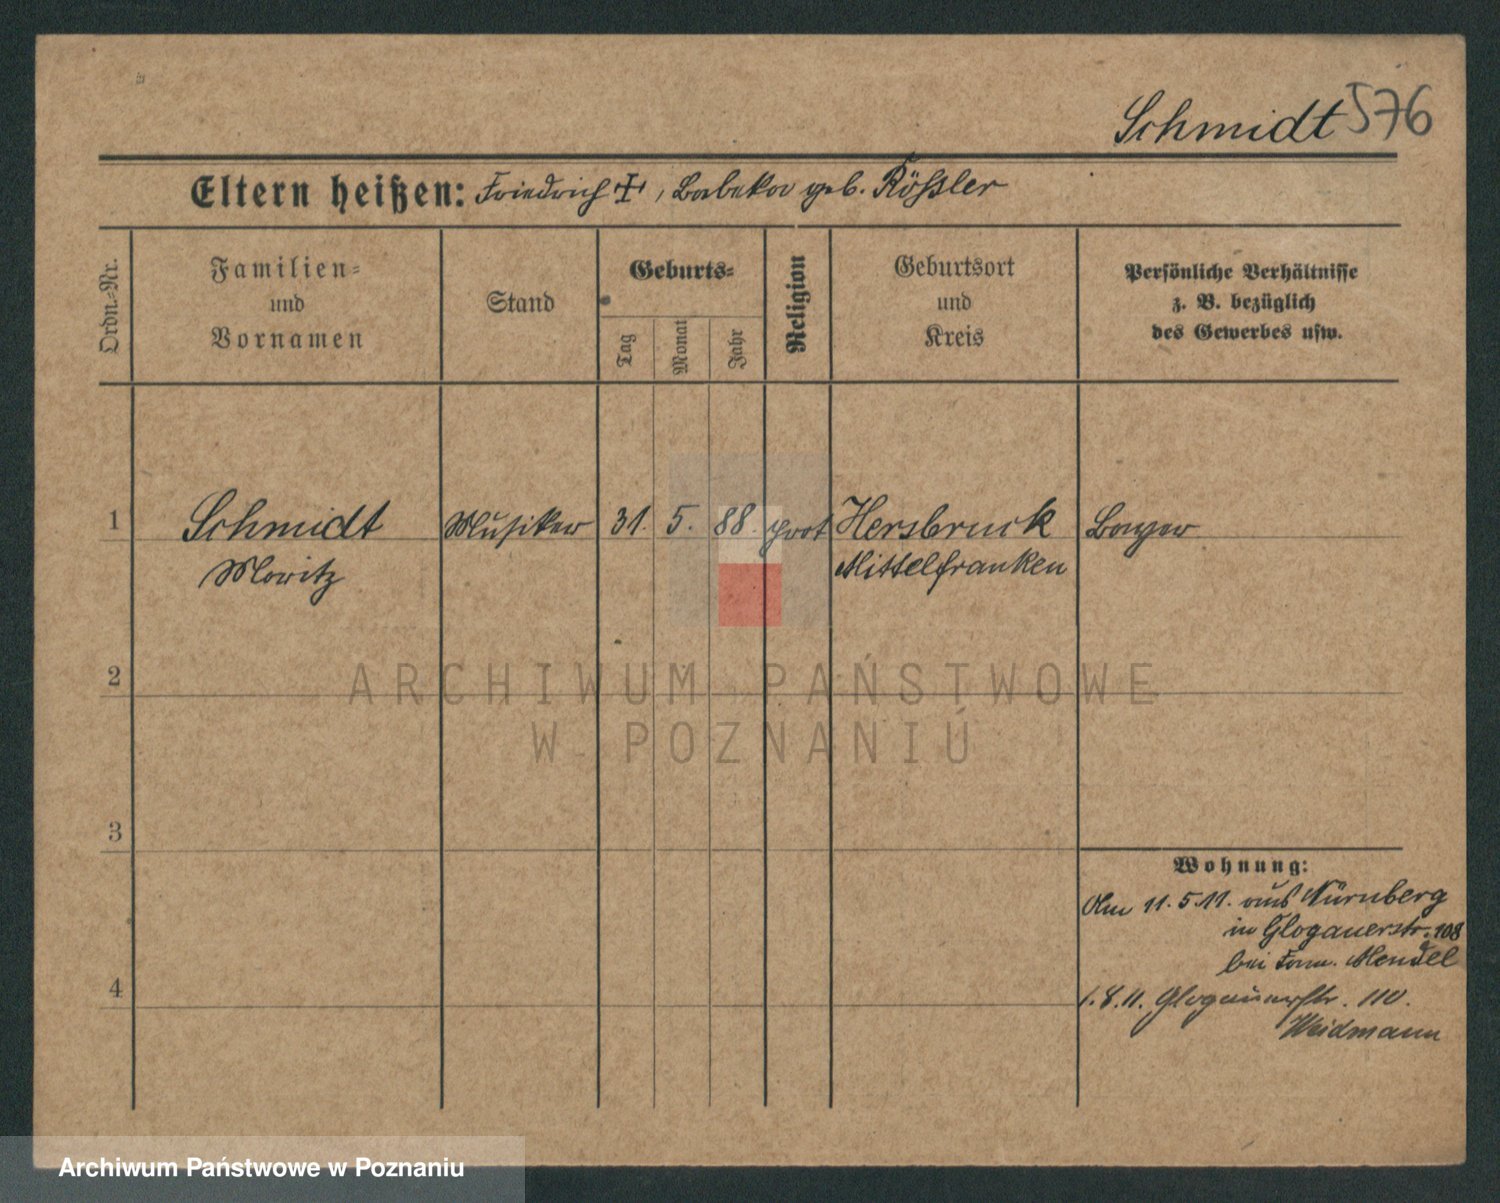 Schmidt 576
Eltern heißen: Friedrich †, Babeka geb. Rößler
Ordn.-Nr.
Familien-
und
Vornamen
Stand
Geburts-
Tag
Monat
Jahr
Religion
Geburtsort
und
Kreis
Persönliche Verhältnisse
z. B. bezüglich
des Gewerbes usw.
1 Schmidt Musiker 31. 5. 88. prot Hersbruck Bayer
Moritz Mittelfranken
2
ARCHIWUM PAŃSTWOWE
W POZNANIU
3
Wohnung:
Am 11.5.11. aus Nürnberg
in Glogauerstr. 108
bei Mendel
4
1.8.11. Glogauerstr. 110.
Weidmann
Archiwum Państwowe w Poznaniu